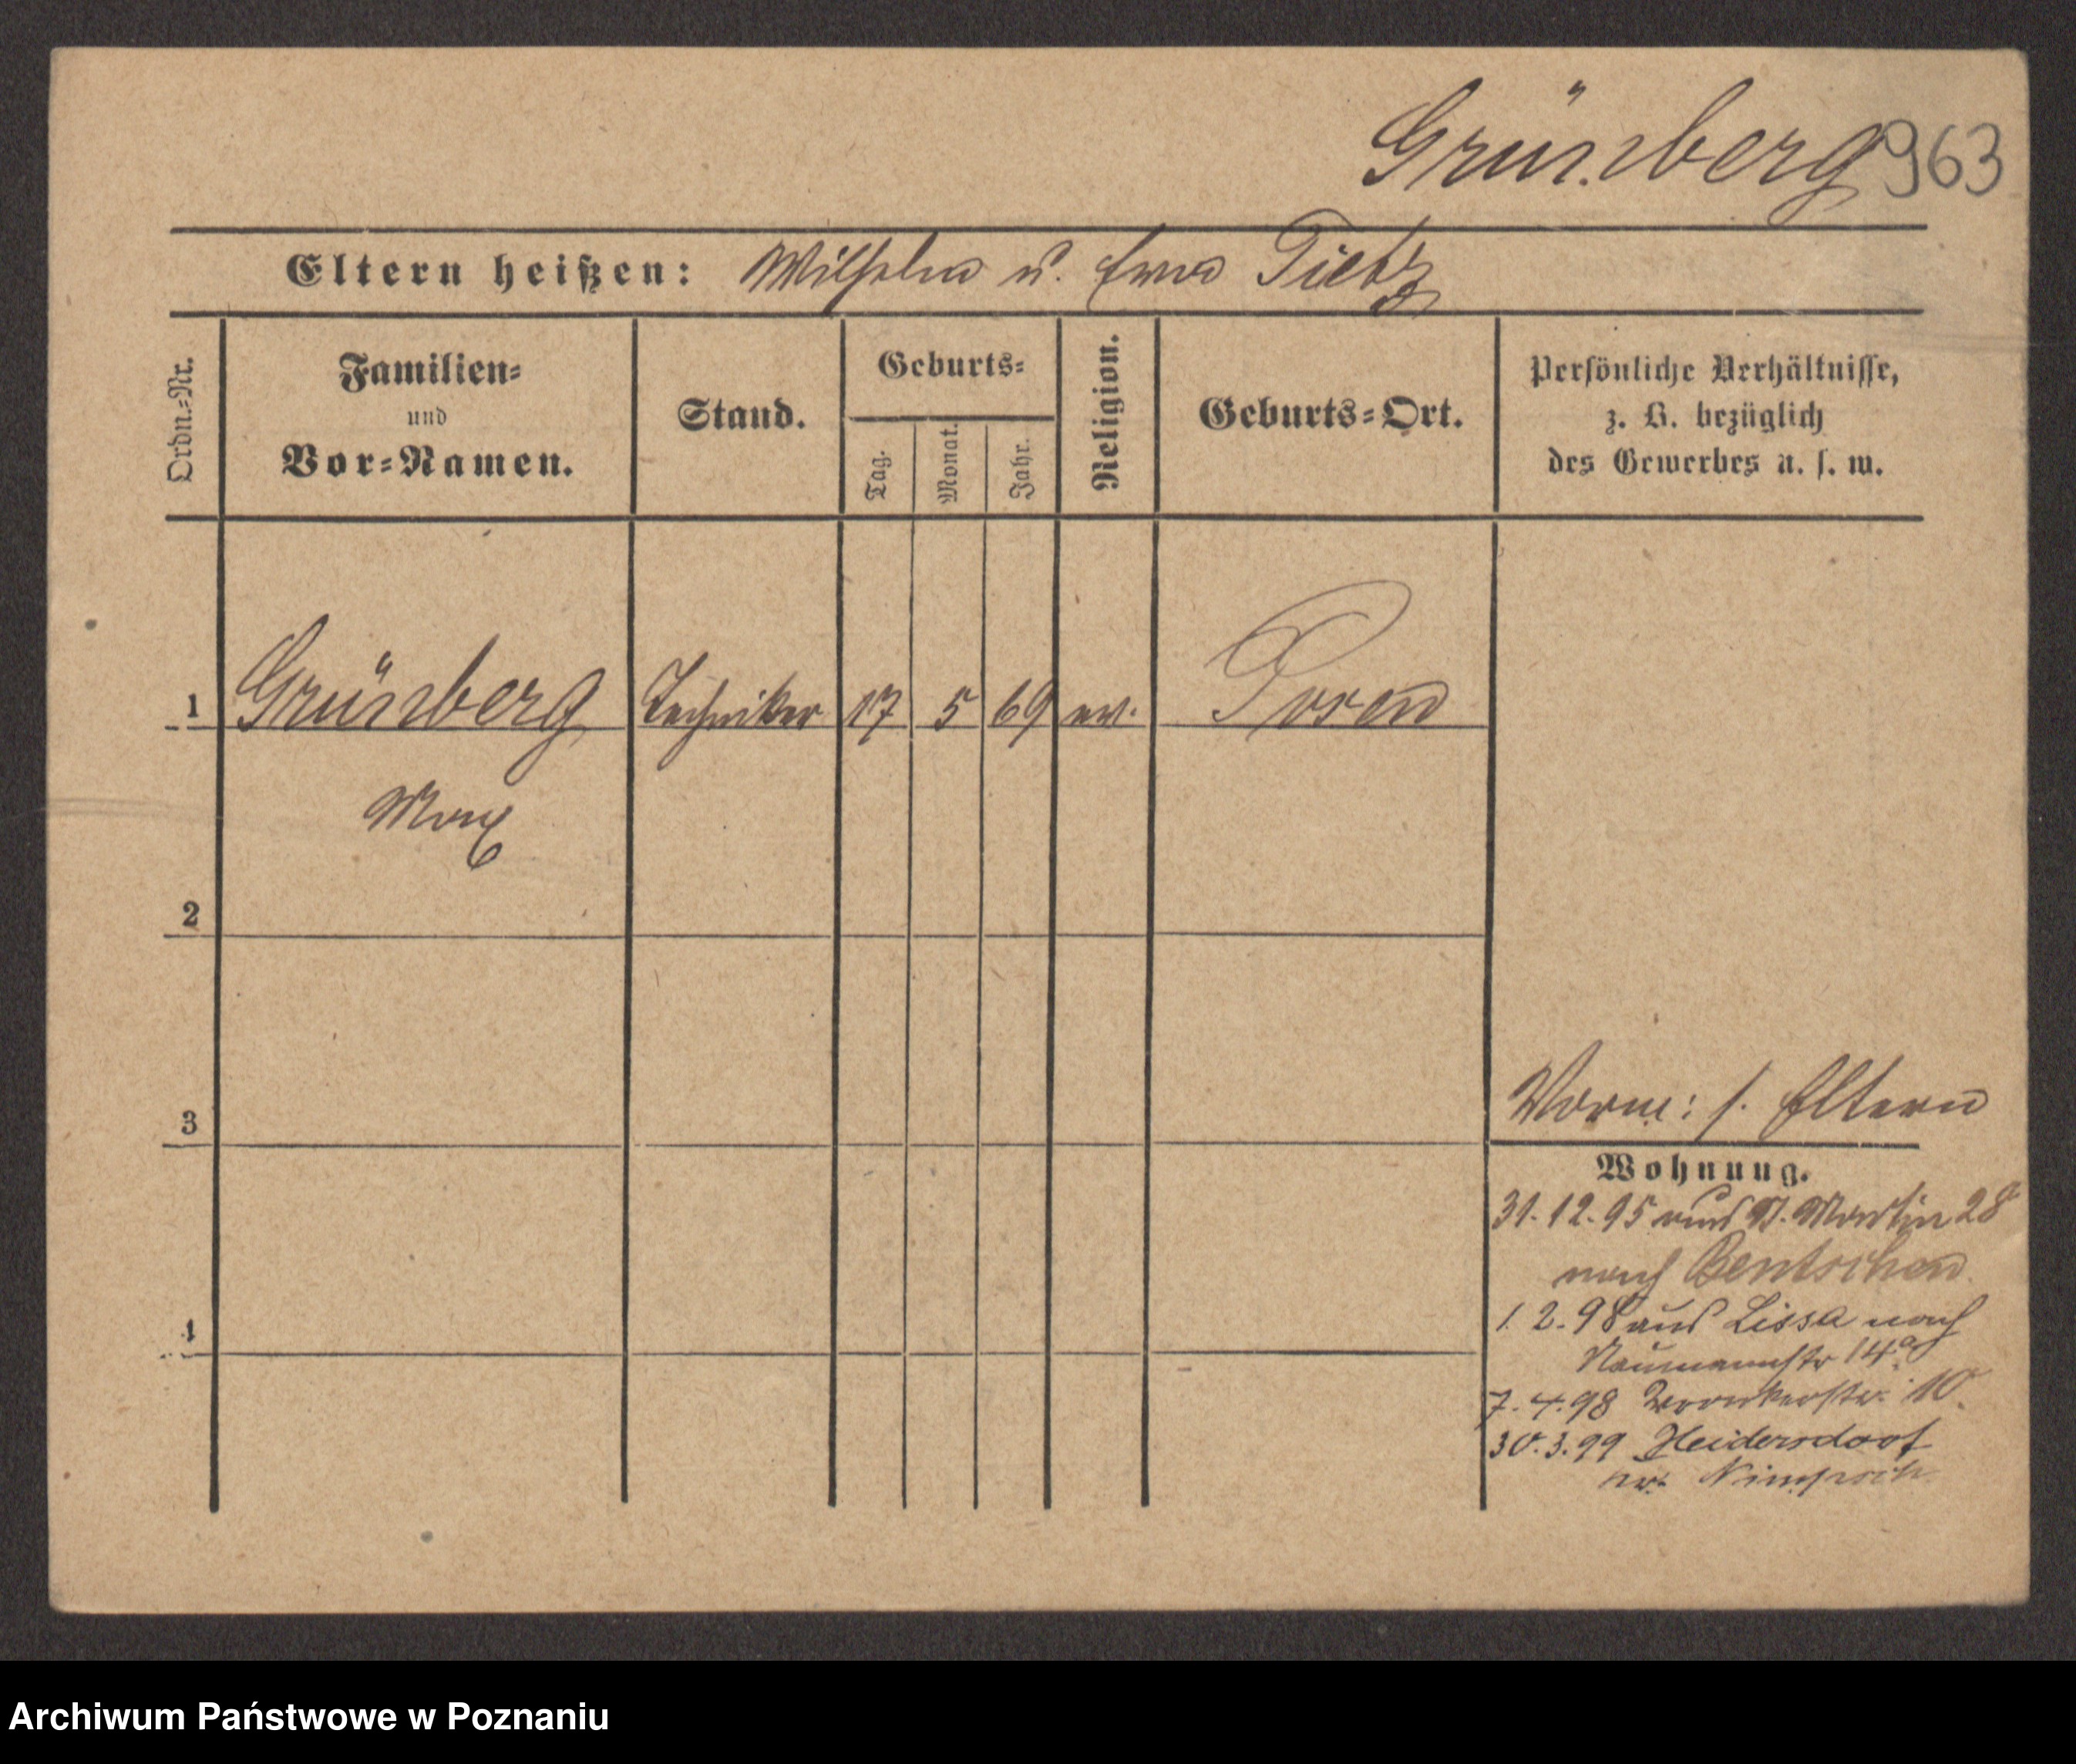 Grünberg 963
Eltern heißen: Wilhelm u. Erna Tietz
Ordn.=Nr.
Familien=
und
Vor=Namen.
Stand.
Geburts=
Tag.
Monat.
Jahr.
Religion.
Geburts=Ort.
Persönliche Verhältnisse,
z. B. bezüglich
des Gewerbes u. s. w.
1 Grünberg Techniker 17 5 69 ev. Posen
Max
2
3
Vorm: s. Eltern
Wohnung.
31.12.95 aus St. Martin 28
nach Bentschen
4
1.2.98 aus Lissa nach
Naumannstr 14a
7.4.98 Wronkerstr. 10.
30.3.99 Heidersdorf
Kr. Nimptsch
Archiwum Państwowe w Poznaniu